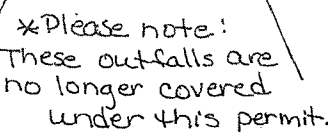 *Please note:
These outfalls are
no longer covered
under this permit.